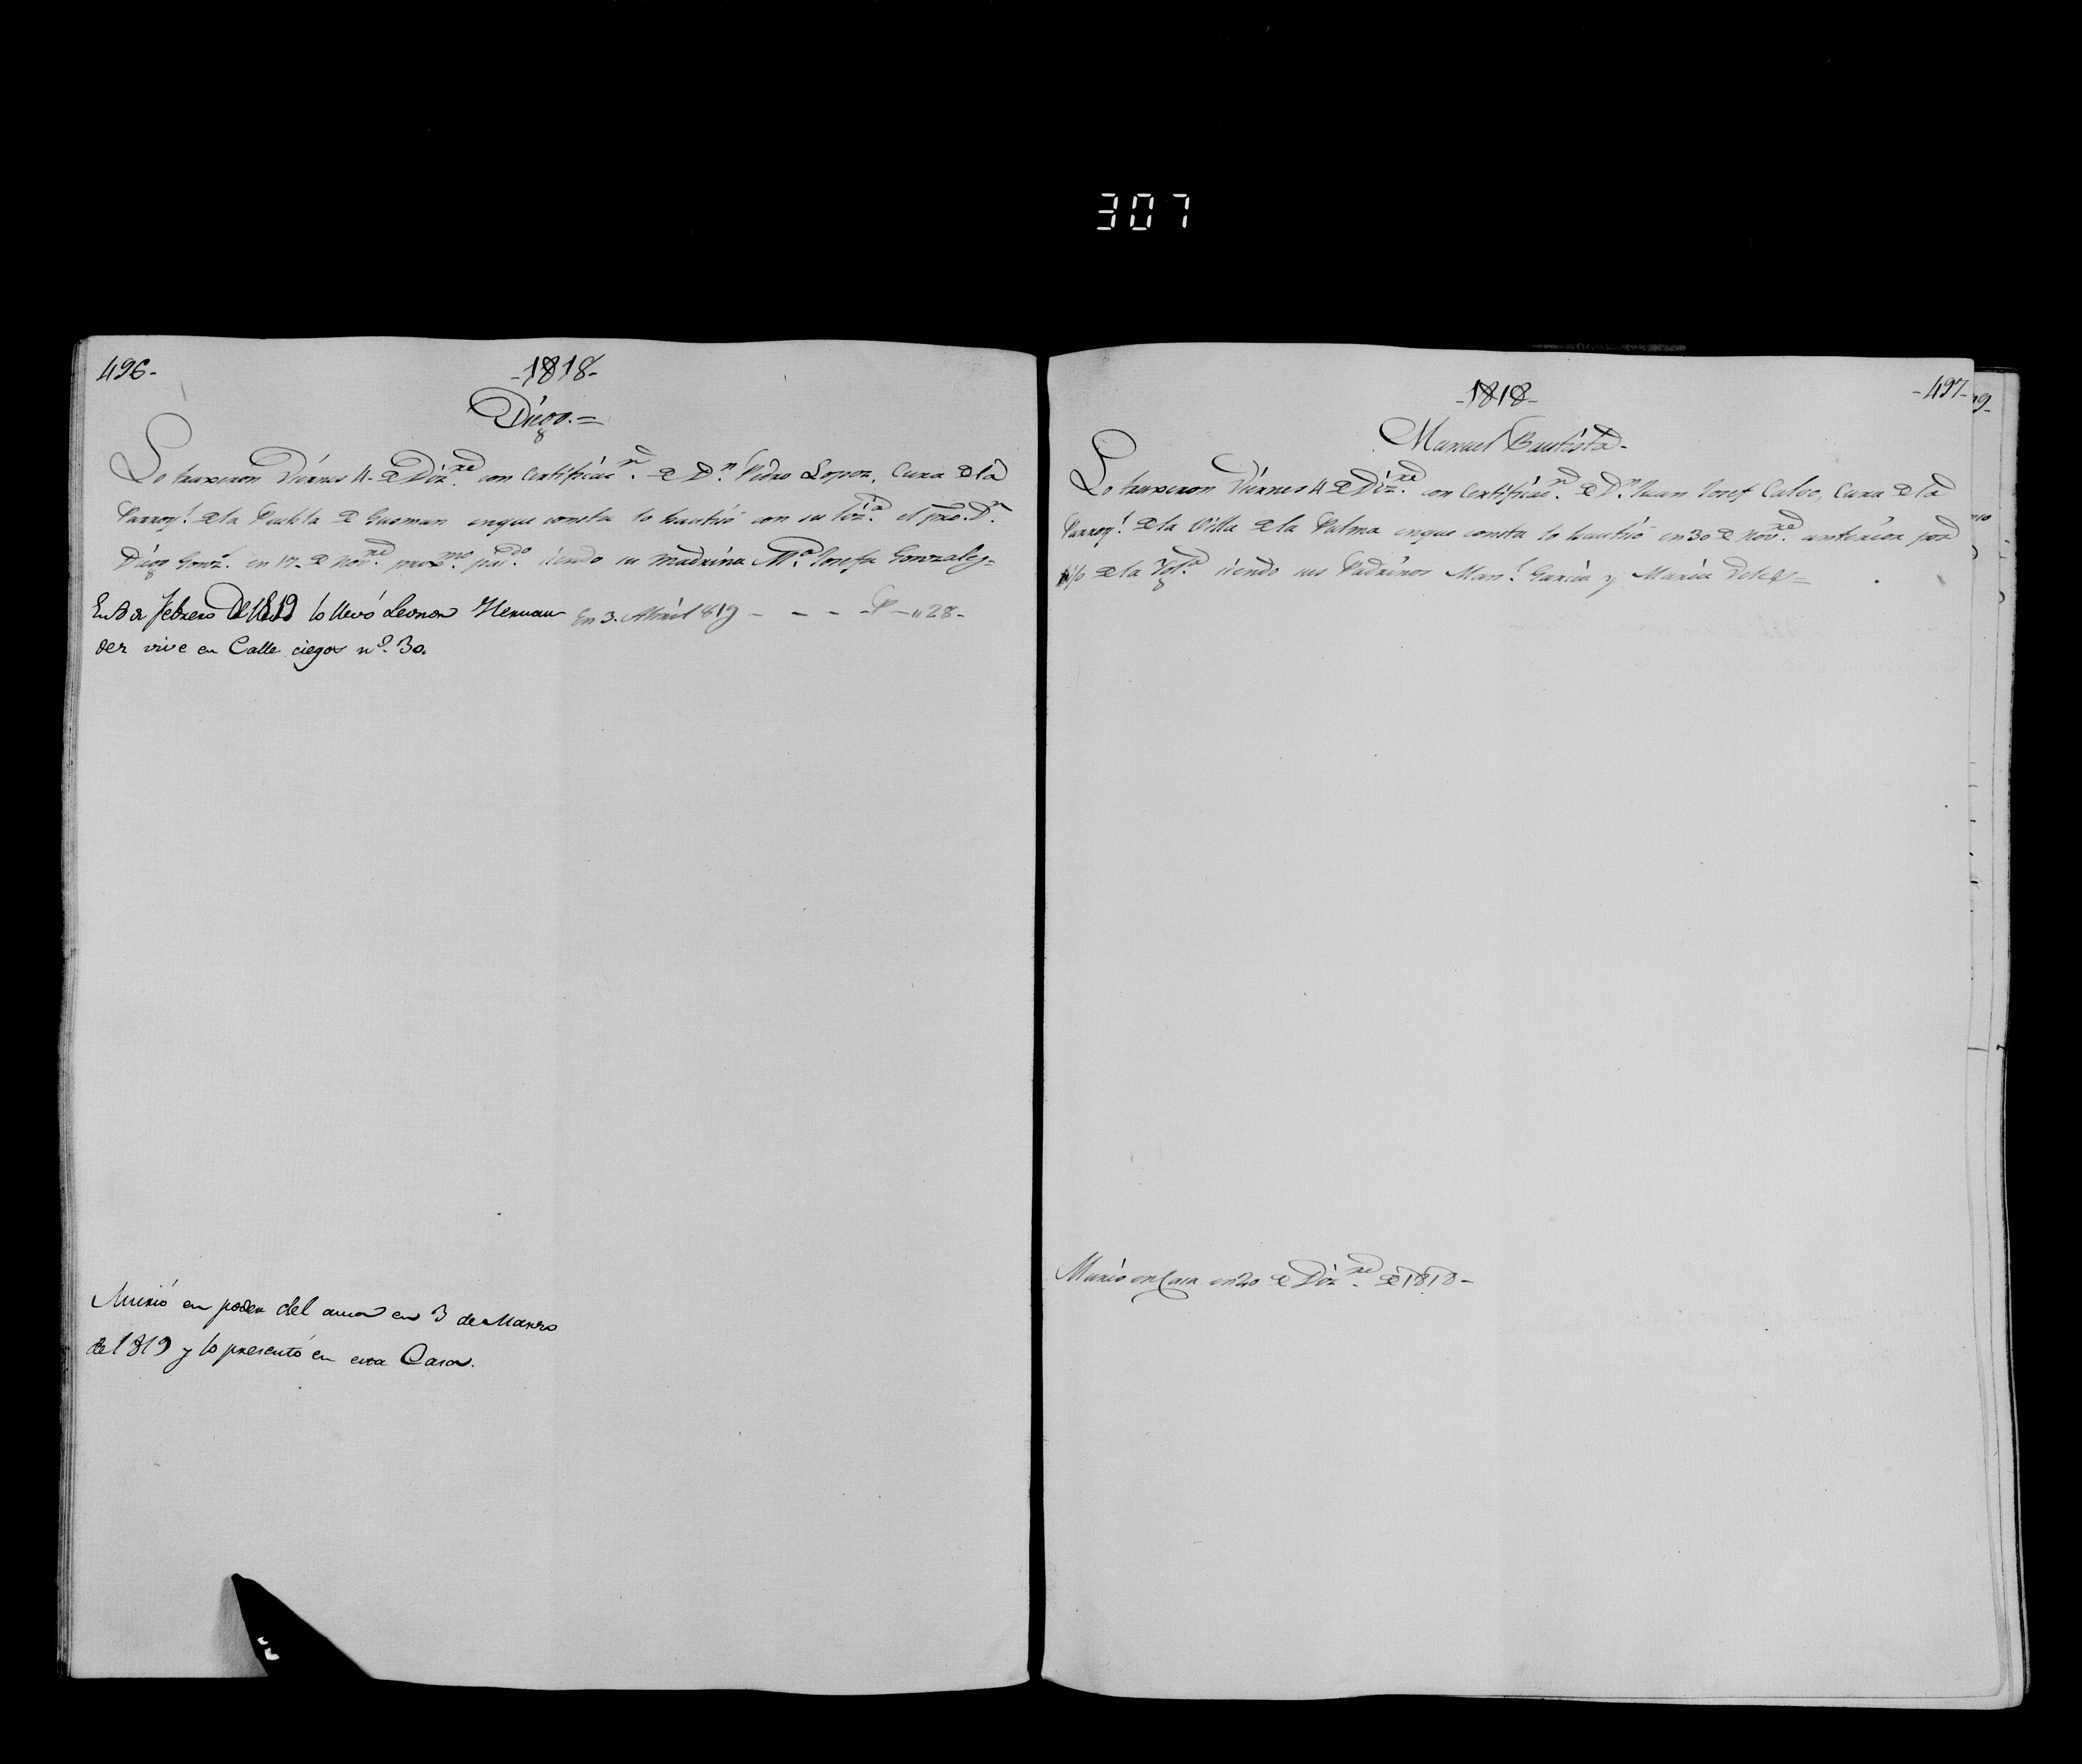 307
496-
-1818-
Diego.=
Lo traxeron Viernes 4. de Diz.re con Certificac.n de D.n Pedro Lopez, Cura de la
Parroq.l de la Puebla de Gusman enque consta lo bautisó con su liz.a el pro. D.n
Diego Gonz.l en 17. de Nov.re proxmo. pasdo. siendo su madrina M.a Josefa Gonzales=
En de febrero de 1819 lo llevó Leonor Hernan
dez vive en Calle ciegos n.o 30.
En 3. Abril 819 - - - - P - „28-
Murió en poder del ama en 3 de Marzo
de 1819 y lo presentó en esta Casa.
-1818-
-497-
Manuel Bautista-
Lo traxeron Viernes 4 de Diz.re con Certificac.n de D.n Juan Josef Calvo, Cura de la
Parroq.l de la Villa de la Palma enque consta lo bautisó en 30 de Nov.re anterior por
hijo de la Ygl.a siendo sus Padrinos Man.l Garcia y Maria
Murio en Casa en 20 de Diz.re de 1818-